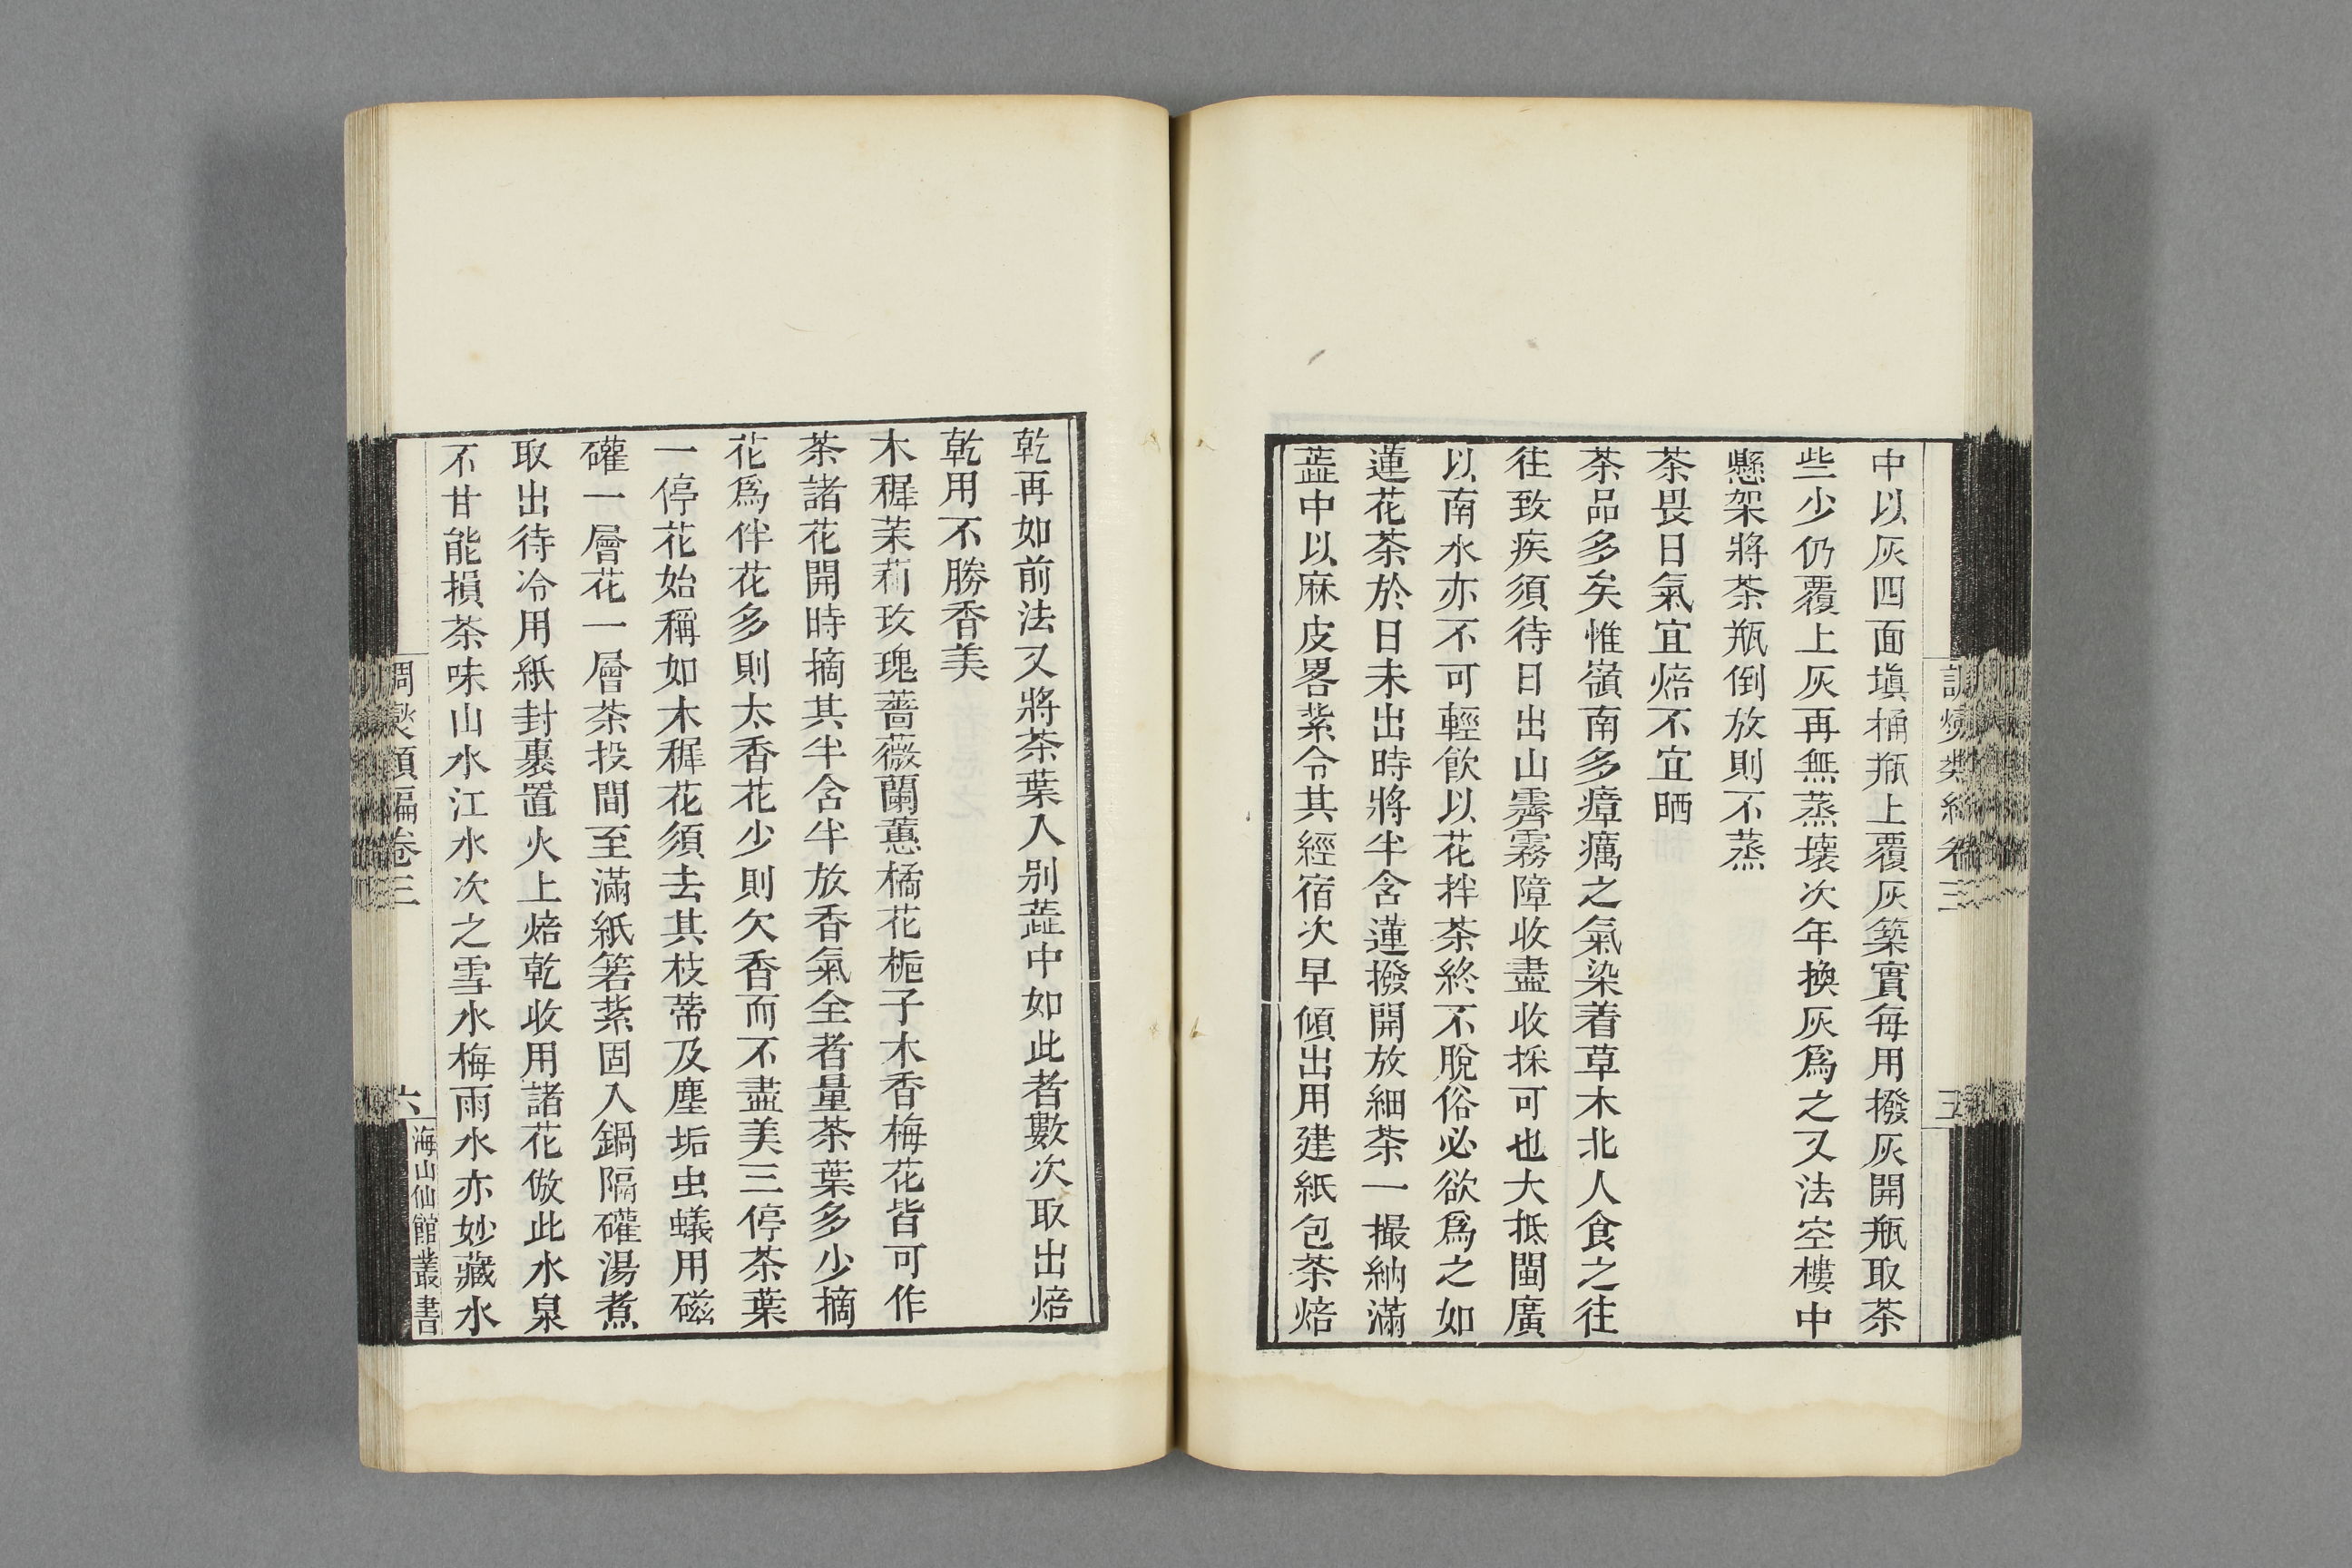 中以灰四面塡桶瓶上覆灰築實每用撥灰開瓶取茶
些少仍覆上灰再無蒸壞次年換灰爲之又法空樓中
懸架將茶瓶倒放則不蒸
茶畏日氣宜焙不宜晒
茶品多矣惟嶺南多瘴癘之氣染着草木北人食之往
往致疾須待日出山霽霧障收盡收採可也大抵閩廣
以南水亦不可輕飮以花拌茶終不脫俗必欲爲之如
蓮花茶於日未出時將半含蓮撥開放細茶一撮納滿
蕋中以麻皮畧紮令其經宿次早傾出用建紙包茶焙
乾再如前法又將茶葉入别蕋中如此者數次取出焙
乾用不勝香美
木穉茉莉玫瑰薔薇蘭蕙橘花梔子木香梅花皆可作
茶諸花開時摘其半含半放香氣全者量茶葉多少摘
花爲伴花多則太香花少則欠香而不盡美三停茶葉
一停花始稱如木穉花須去其枝蒂及塵垢虫蟻用磁
礶一層花一層茶投間至滿紙箬紮固入鍋隔礶湯煮
取出待冷用紙封裹置火上焙乾收用諸花倣此水泉
不甘能損茶味山水江水次之雪水梅雨水亦妙藏水
調燮類編卷三
六
海山仙館叢書